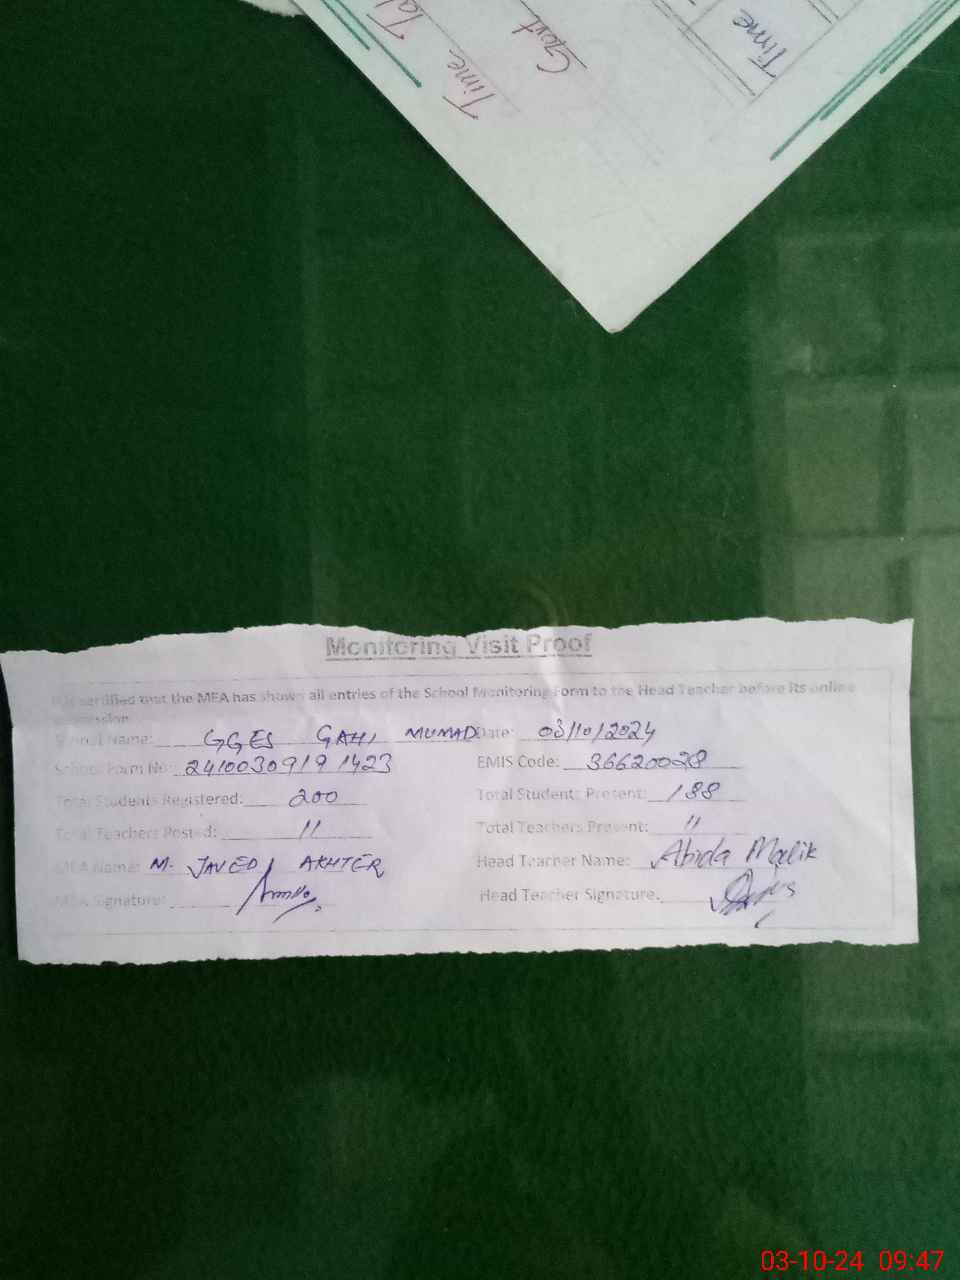 Time
Govt
Time
Monitoring Visit Proof
certified that the MEA has shown all entries of the School Monitoring Form to the Head Teacher before its online
School Name: GGES GAHI MUMAD Date: 03/10/2024
School Form No: 2410030919 1423 EMIS Code: 36620028
Total Students Registered: 200 Total Students Present: 188
Total Teachers Posted: 11 Total Teachers Present: 11
MEA Name: M. JAVED AKHTER Head Teacher Name: Abida Malik
MEA Signature: Head Teacher Signature.
03-10-24 09:47